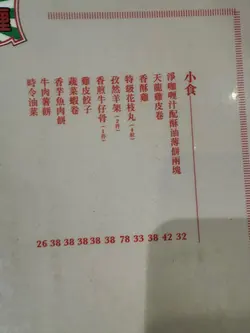 小食
淨咖喱汁配酥油薄餅兩塊
天龍雞皮卷
香酥雞
特級花枝丸(4粒)
孜然羊架(2件)
香煎牛仔骨(1件)
雞皮餃子
蔬菜蝦卷
香芋魚肉餅
牛肉薯餅
時令油菜
26 38 38 38 38 38 78 33 38 42 32